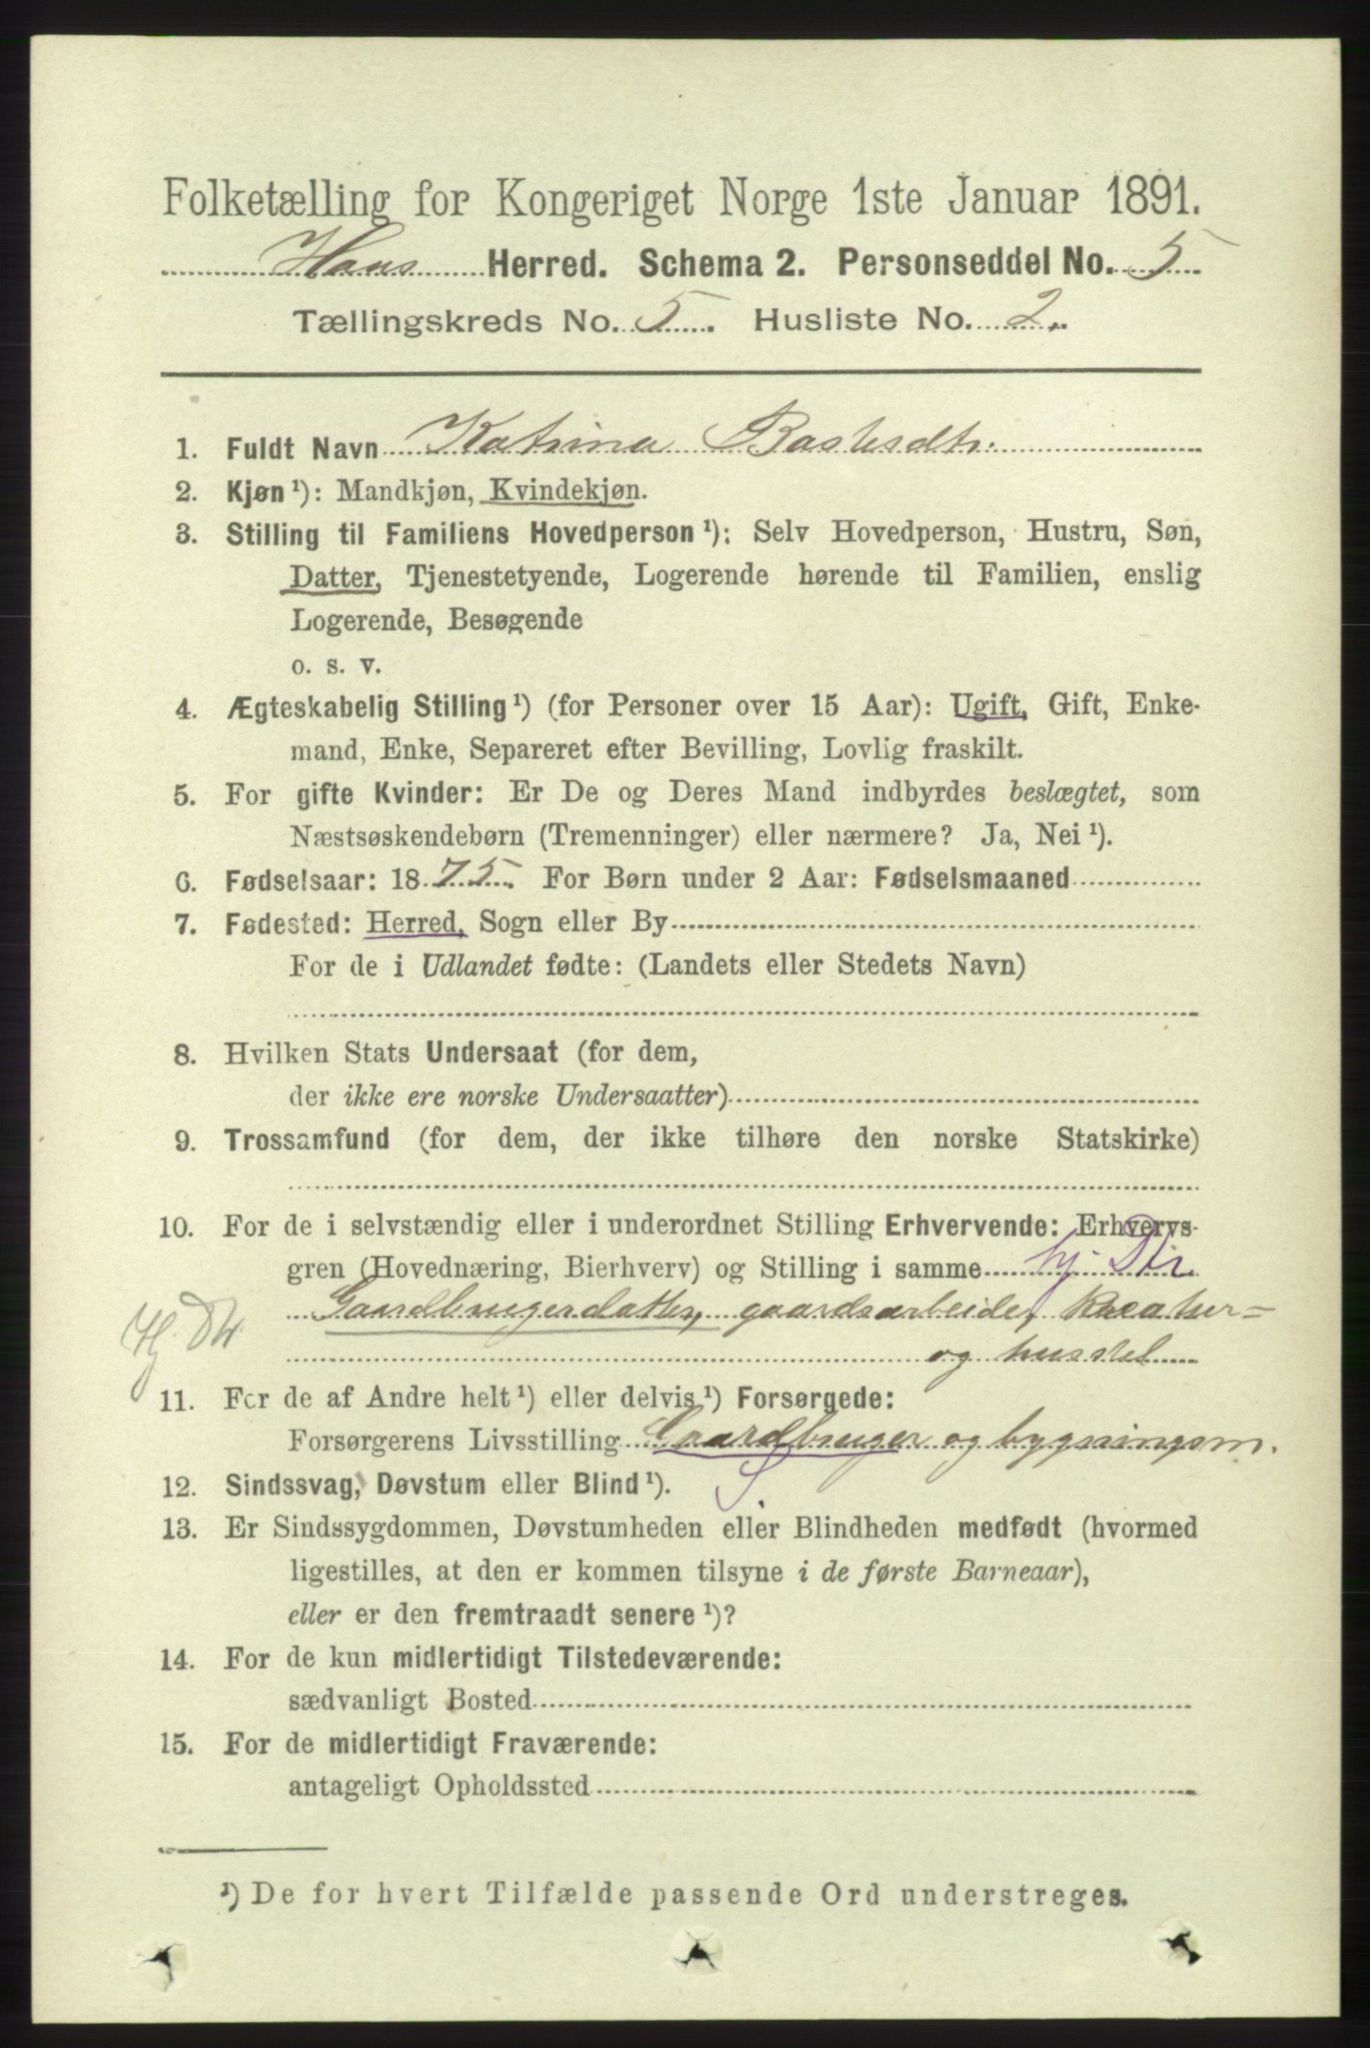 Folketælling for Kongeriget Norge 1ste Januar 1891.
Haus Herred. Schema 2. Personseddel No. 5
Tællingskreds No. 5. Husliste No. 2.
1. Fuldt Navn Katrina Bastesdtr.
2. Kjøn ¹): Mandkjøn, Kvindekjøn.
3. Stilling til Familiens Hovedperson ¹): Selv Hovedperson, Hustru, Søn,
Datter, Tjenestetyende, Logerende hørende til Familien, enslig
Logerende, Besøgende
o. s. v.
4. Ægteskabelig Stilling ¹) (for Personer over 15 Aar): Ugift, Gift, Enke-
mand, Enke, Separeret efter Bevilling, Lovlig fraskilt.
5. For gifte Kvinder: Er De og Deres Mand indbyrdes beslægtet, som
Næstsøskendebørn (Tremenninger) eller nærmere? Ja, Nei ¹).
6. Fødselsaar: 1875. For Børn under 2 Aar: Fødselsmaaned
7. Fødested: Herred, Sogn eller By
For de i Udlandet fødte: (Landets eller Stedets Navn)
8. Hvilken Stats Undersaat (for dem,
der ikke ere norske Undersaatter)
9. Trossamfund (for dem, der ikke tilhøre den norske Statskirke)
10. For de i selvstændig eller i underordnet Stilling Erhvervende: Erhvervs-
gren (Hovednæring, Bierhverv) og Stilling i samme hj. Dtr
Gaardbrugerdatter, gaardsarbeide, Kreatur-
Hj. Dtr
og husstel
11. For de af Andre helt ¹) eller delvis ¹) Forsørgede:
Forsørgerens Livsstilling Gaardbruger og bygningsm.
12. Sindssvag, Døvstum eller Blind ¹). S
13. Er Sindssygdommen, Døvstumheden eller Blindheden medfødt (hvormed
ligestilles, at den er kommen tilsyne i de første Barneaar),
eller er den fremtraadt senere ¹)?
14. For de kun midlertidigt Tilstedeværende:
sædvanligt Bosted
15. For de midlertidigt Fraværende:
antageligt Opholdssted
¹) De for hvert Tilfælde passende Ord understreges.